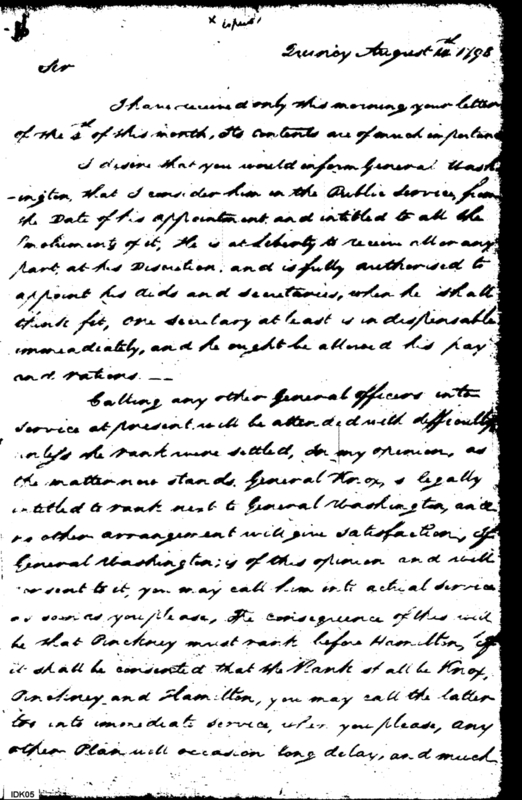 x copied
Quincy August 14th 1798
Sir
I have received only this morning your letter
of the 4th of this month, Its contents are of much importance
I desire that you would inform General Wash
-ington, that I consider him in the Public Service, from
the Date of his appointment and intitled to all the
Emoluments of it, He is at Liberty to receive all or any
part, at his Discretion, and is fully authorised to
appoint his Aids and secretaries, when he shall
think fit, one secretary at least is indispensable
immeadiately, and he ought be allowed his pay
and rations. —
Calling any other General officers into
service at present will be attended with difficulty,
unless the rank were settled, In my opinion, as
the matter now stands General Knox, is legally
intitled to rank next to General Washington, and
no other arrangement will give satisfaction, If
General Washington, is of this opinion and will
consent to it, you may call him into actual service
as soon as you please, The consequence of this will
be that Pinckney must rank before Hamilton, If
it shall be consented that the Rank shall be Knox,
Pinckney and Hamilton, you may call the latter
too into immediate service, when you please, any
other Plan will occasion long delay, and much
IDK05